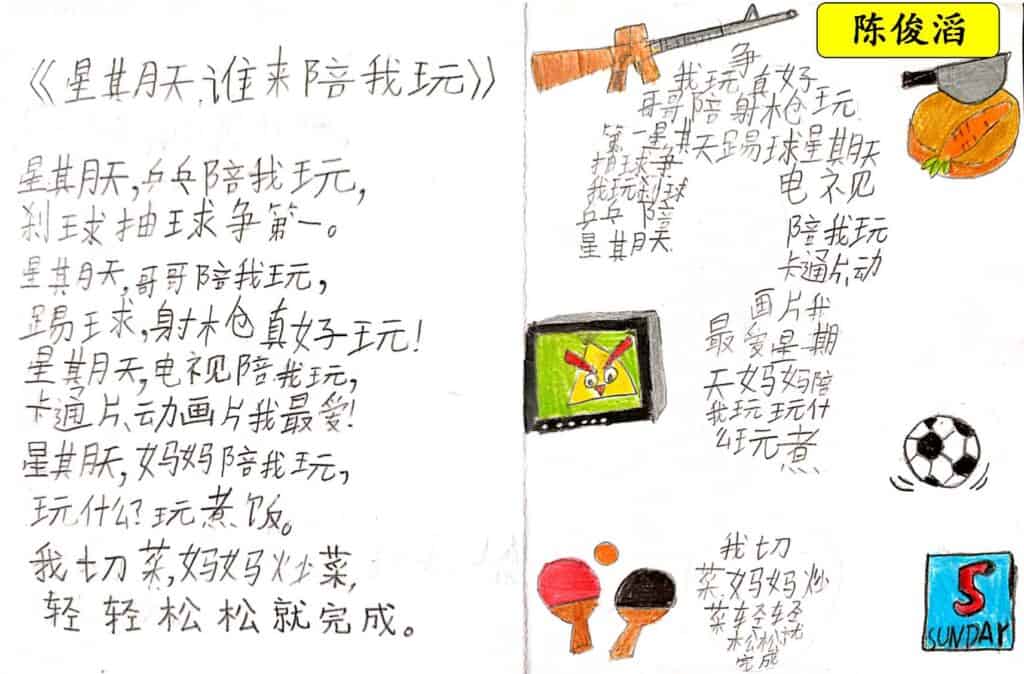 陈俊滔
《星期天,谁来陪我玩》
星期天,乒乓陪我玩,
刹球抽球争第一。
星期天,哥哥陪我玩,
踢球,射枪真好玩!
星期天,电视陪我玩,
卡通片、动画片我最爱!
星期天,妈妈陪我玩,
玩什么?玩煮饭。
我切菜,妈妈炒菜,
轻轻松松就完成。
争
我玩真好
哥哥陪射枪玩
第一星期天踢球星期天
抽球争
我玩刹球
乒乓陪
星期天
电视
陪我玩
卡通片、动
画片我
最爱星期
天妈妈陪
我玩玩什
么玩煮
我切
菜妈妈炒
菜轻轻
松松就
完成
S
SUNDAY